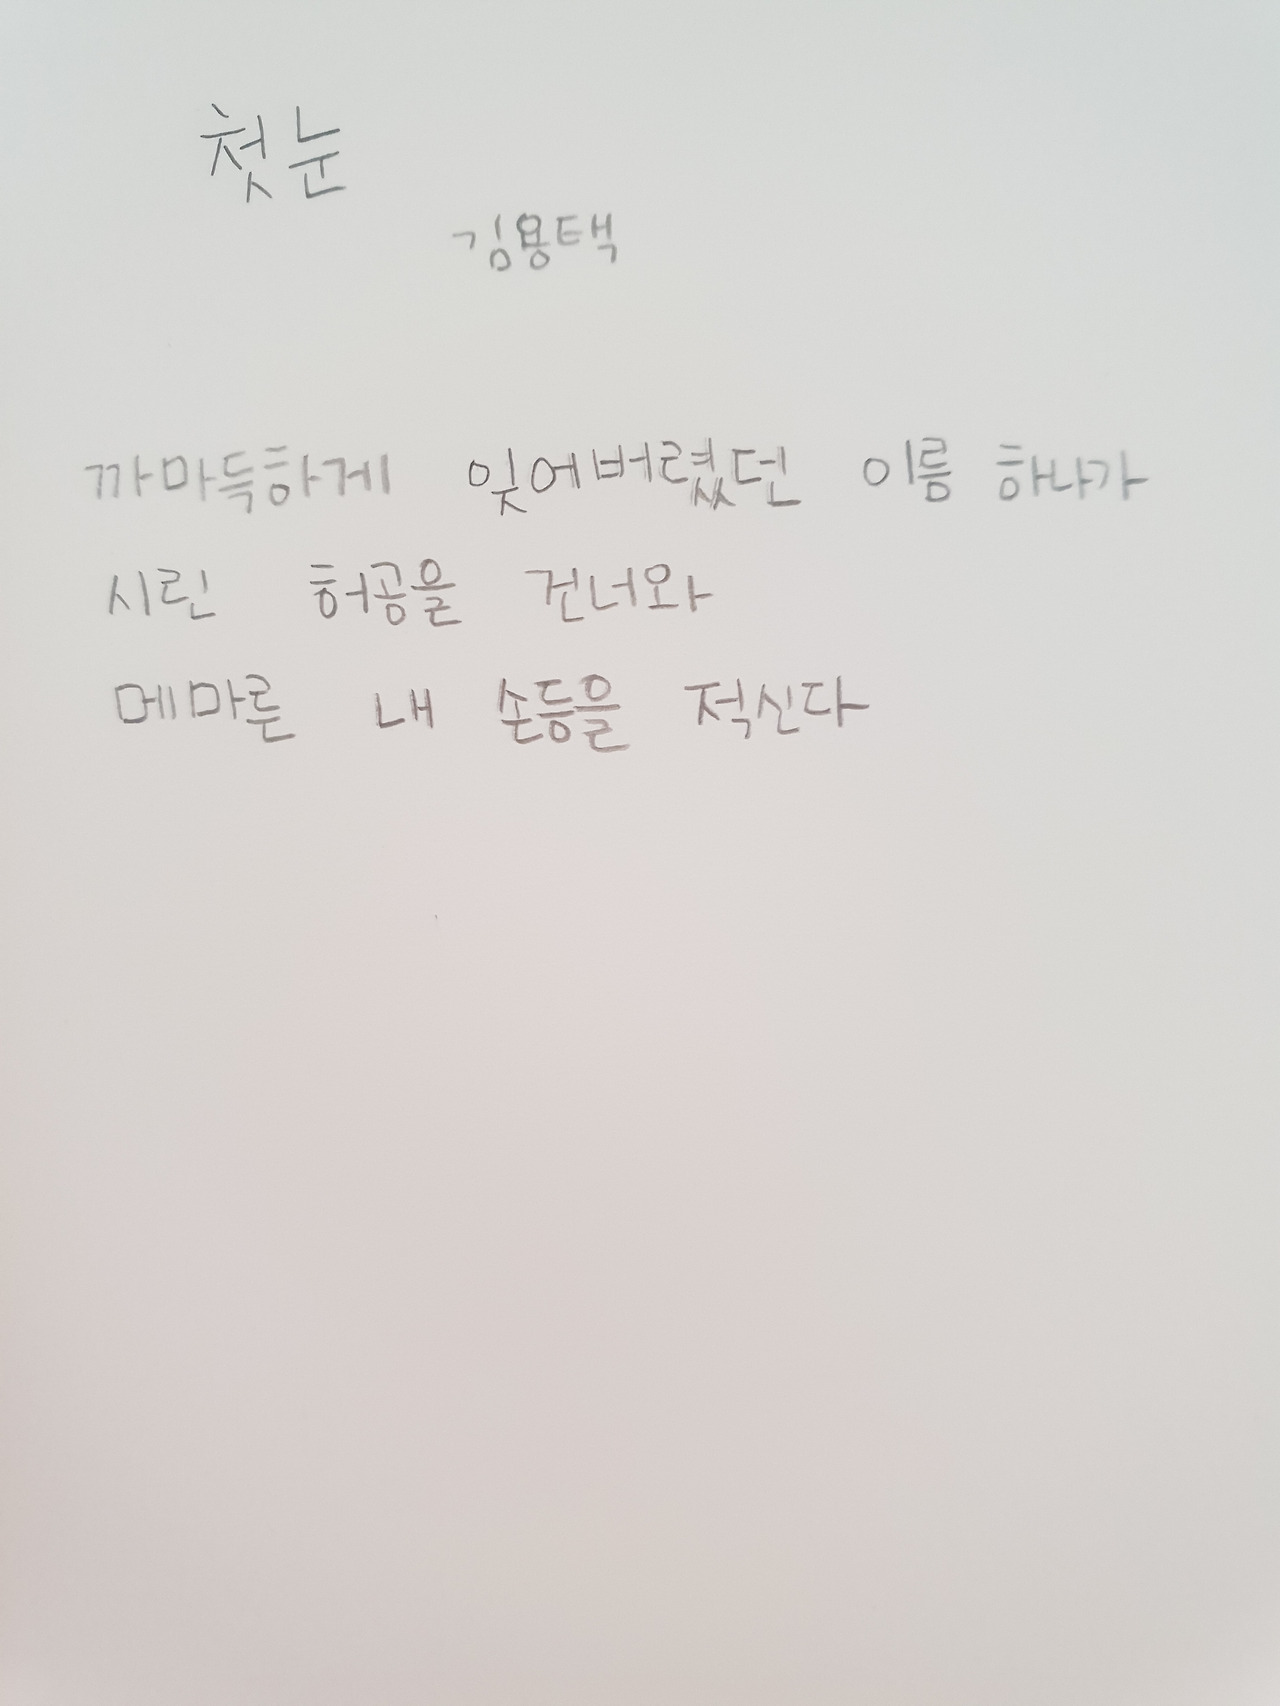 첫눈
김용택
까마득하게 잊어버렸던 이름 하나가
시린 허공을 건너와
메마른 내 손등을 적신다